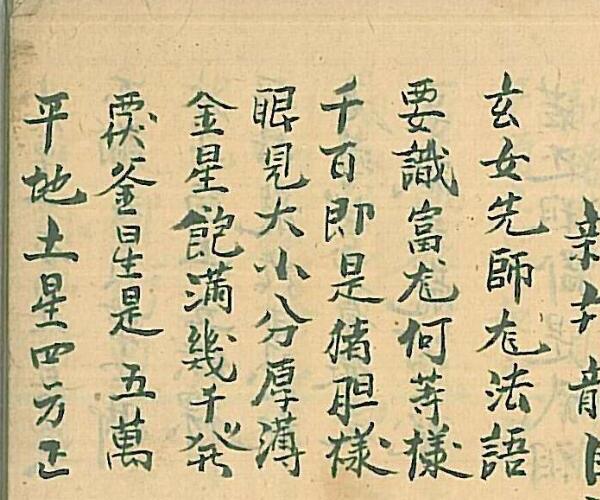 龍
玄女先師龙法語
要識富龙何等樣
千百即是猪胆樣
眼見大小分厚薄
金星飽滿幾千
釜星是五萬
平地土星四方正